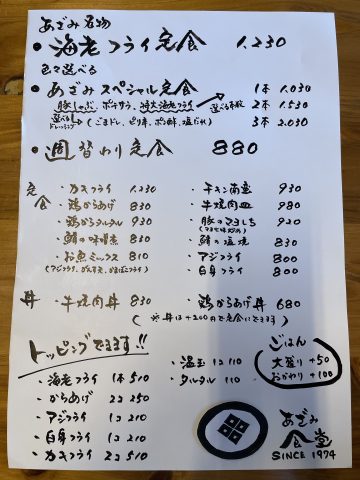 あざみ名物
・海老フライ定食 1.230
色々選べる
・あざみスペシャル定食 1本 1.030
豚しゃぶ、ポテサラ、特大海老フライ 選べる本数 2本 1.530
選べるドレッシング (ごまドレ、ピリ辛、ポン酢、塩だれ) 3本 2.030
・週替わり定食 880
定食
・カキフライ 1.230
・鶏からあげ 830
・鶏からタルタル 930
・鯖の味噌煮 830
・お魚ミックス 810
(アジフライ、がんす天、かまぼこフライ)
・チキン南蛮 930
・牛焼肉皿 980
・豚のマヨしち 920
・鯖の塩焼 830
・アジフライ 800
・白身フライ 800
丼 ・牛焼肉丼 830 ・鶏からあげ丼 680
(※丼は+200円で定食にできます)
トッピングできます!!
・海老フライ 1本 510
・からあげ 2コ 250
・アジフライ 1コ 210
・白身フライ 1コ 210
・カキフライ 2コ 510
・温玉 1コ 110
・タルタル 110
ごはん
大盛り +50
おかわり +100
あざみ
食堂
SINCE 1974